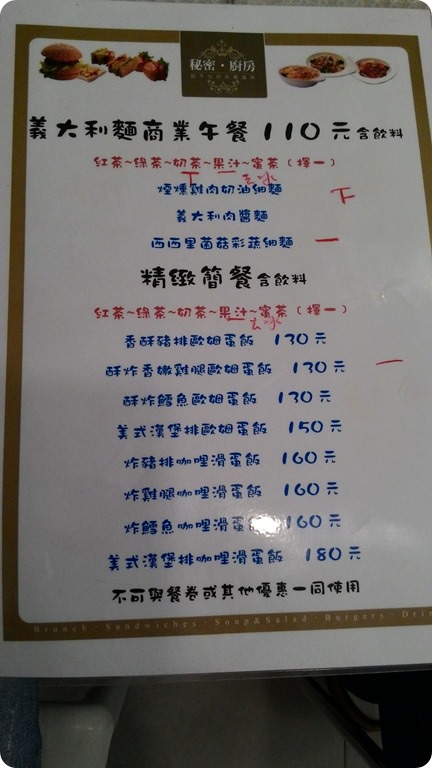 秘密·廚房
義大利麵商業午餐 110元含飲料
紅茶~綠茶~奶茶~果汁~蜜茶(擇一)
去冰
煙燻雞肉奶油細麵 下
義大利肉醬麵
西西里菌菇彩蔬細麵 一
精緻簡餐含飲料
紅茶~綠茶~奶茶~果汁~蜜茶(擇一)
去冰
香酥豬排歐姆蛋飯 130元
酥炸香嫩雞腿歐姆蛋飯 130元 一
酥炸鱈魚歐姆蛋飯 130元
美式漢堡排歐姆蛋飯 150元
炸豬排咖哩滑蛋飯 160元
炸雞腿咖哩滑蛋飯 160元
炸鱈魚咖哩滑蛋飯 160元
美式漢堡排咖哩滑蛋飯 180元
不可與餐卷或其他優惠一同使用
Brunch · Sandwiches · Soup&Salad · Burgers · Dri